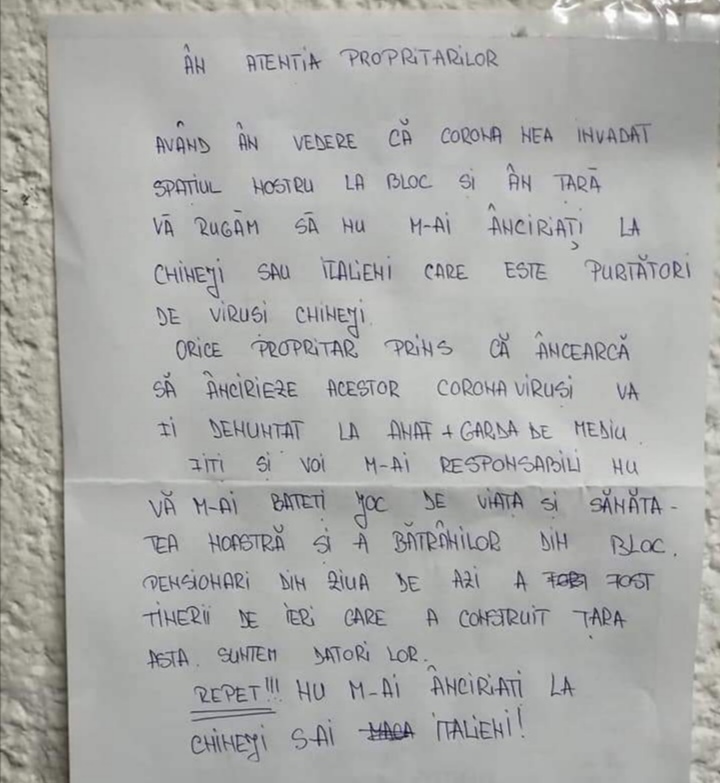 ÂN ATENTIA PROPRITARILOR
AVÂND ÂN VEDERE CĂ CORONA NEA INVADAT
SPATIUL NOSTRU LA BLOC SI ÂN TARĂ
VĂ RUGĂM SĂ NU M-AI ÂNCIRIAȚI LA
CHINEJI SAU ITALIENI CARE ESTE PURTĂTORI
DE VIRUSI CHINEJI.
ORICE PROPRITAR PRINS CĂ ÂNCEARCĂ
SĂ ÂNCIRIEZE ACESTOR CORONA VIRUSI VA
FI DENUNTAT LA ANAF + GARDA DE MEDIU.
FITI SI VOI M-AI RESPONSABILI NU
VĂ M-AI BATETI JOC DE VIATA SI SĂNĂTA-
TEA NOASTRĂ SI A BĂTRÂNILOR DIN BLOC.
PENSIONARI DIN ZIUA DE AZI A FOST
TINERII DE IERI CARE A CONSTRUIT ȚARA
ASTA. SUNTEM DATORI LOR.
REPET!!! NU M-AI ÂNCIRIATI LA
CHINEJI SAI ITALIENI!